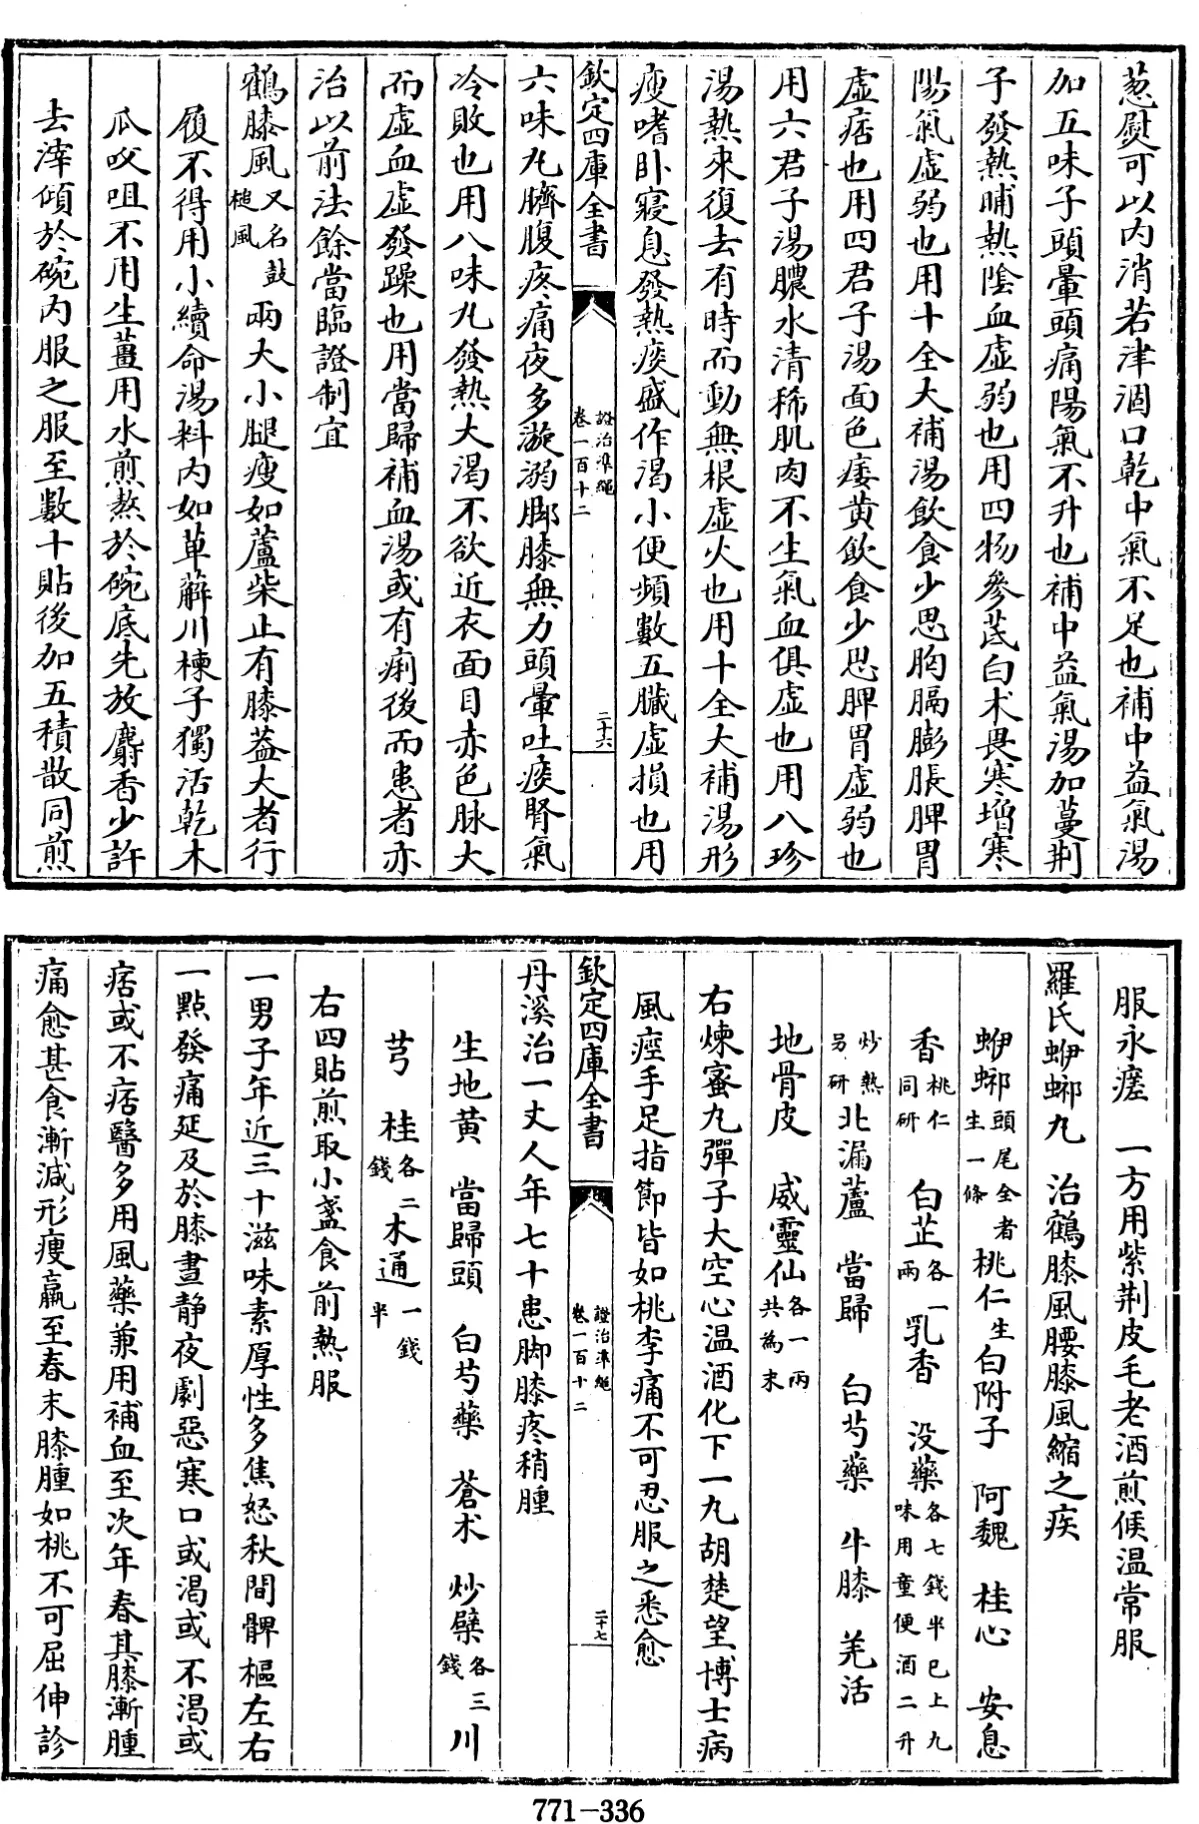 葱熨可以内消若津涸口乾中氣不足也補中益氣湯
加五味子頭暈頭痛陽氣不升也補中益氣湯加蔓荆
子發熱晡熱陰血虛弱也用四物參芪白术畏寒增寒
陽氣虛弱也用十全大補湯飲食少思胸膈膨脹脾胃
虛痞也用四君子湯面色痿黄飲食少思脾胃虛弱也
用六君子湯膿水清稀肌肉不生氣血俱虛也用八珍
湯熱來復去有時而動無根虛火也用十全大補湯形
瘦嗜卧寢息發熱痰盛作渴小便頻數五臟虛損也用
欽定四庫全書
證治準繩
卷一百十二
二十六
六味丸臍腹疼痛夜多漩溺脚膝無力頭暈吐痰腎氣
冷敗也用八味丸發熱大渴不欲近衣面目赤色脉大
而虛血虛發躁也用當歸補血湯或有痢後而患者亦
治以前法餘當臨證制宜
鶴膝風又名鼓槌風兩大小腿瘦如蘆柴止有膝葢大者行
履不得用小續命湯料内如萆薢川楝子獨活乾木
瓜㕮咀不用生薑用水煎熬於碗底先放麝香少許
去滓傾於碗内服之服至數十貼後加五積散同煎
服永瘥　一方用紫荆皮毛老酒煎候温常服
羅氏蛜𧌴丸　治鶴膝風腰膝風縮之疾
蛜𧌴頭尾全者生一條桃仁生白附子　阿魏　桂心　安息
香桃仁同研　白芷各一兩乳香　没藥各七錢半已上九味用童便酒二升
炒熱另研北漏蘆　當歸　白芍藥　牛膝　羌活
地骨皮　威靈仙各一兩共為末
右煉蜜丸彈子大空心温酒化下一丸胡楚望博士病
風痙手足指節皆如桃李痛不可忍服之悉愈
欽定四庫全書
證治準繩
卷一百十二
二十七
丹溪治一丈人年七十患脚膝疼稍腫
生地黄　當歸頭　白芍藥　蒼术　炒蘗各三錢川
芎　桂各二錢木通一錢半
右四貼煎取小盞食前熱服
一男子年近三十滋味素厚性多焦怒秋間髀樞左右
一點發痛延及於膝晝静夜劇惡寒口或渴或不渴或
痞或不痞醫多用風藥兼用補血至次年春其膝漸腫
痛愈甚食漸減形瘦羸至春末膝腫如桃不可屈伸診
771-336